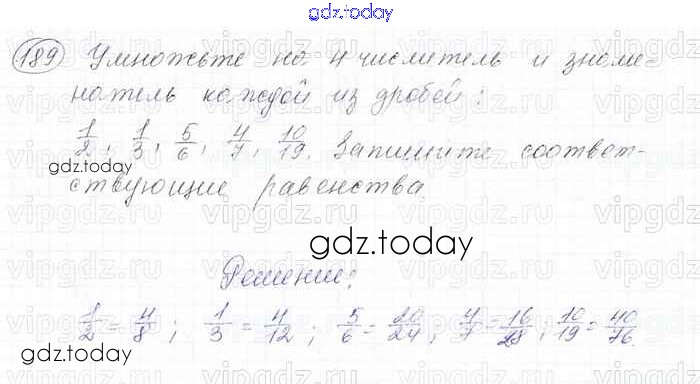 gdz.today
189 Умножьте на 4 числитель и знаме-
натель каждой из дробей:
1/2, 1/3, 5/6, 4/7, 10/19. Запишите соответ-
gdz.today
ствующие равенства.
gdz.today
Решение:
1/2 = 4/8; 1/3 = 4/12; 5/6 = 20/24; 4/7 = 16/28; 10/19 = 40/76.
gdz.today